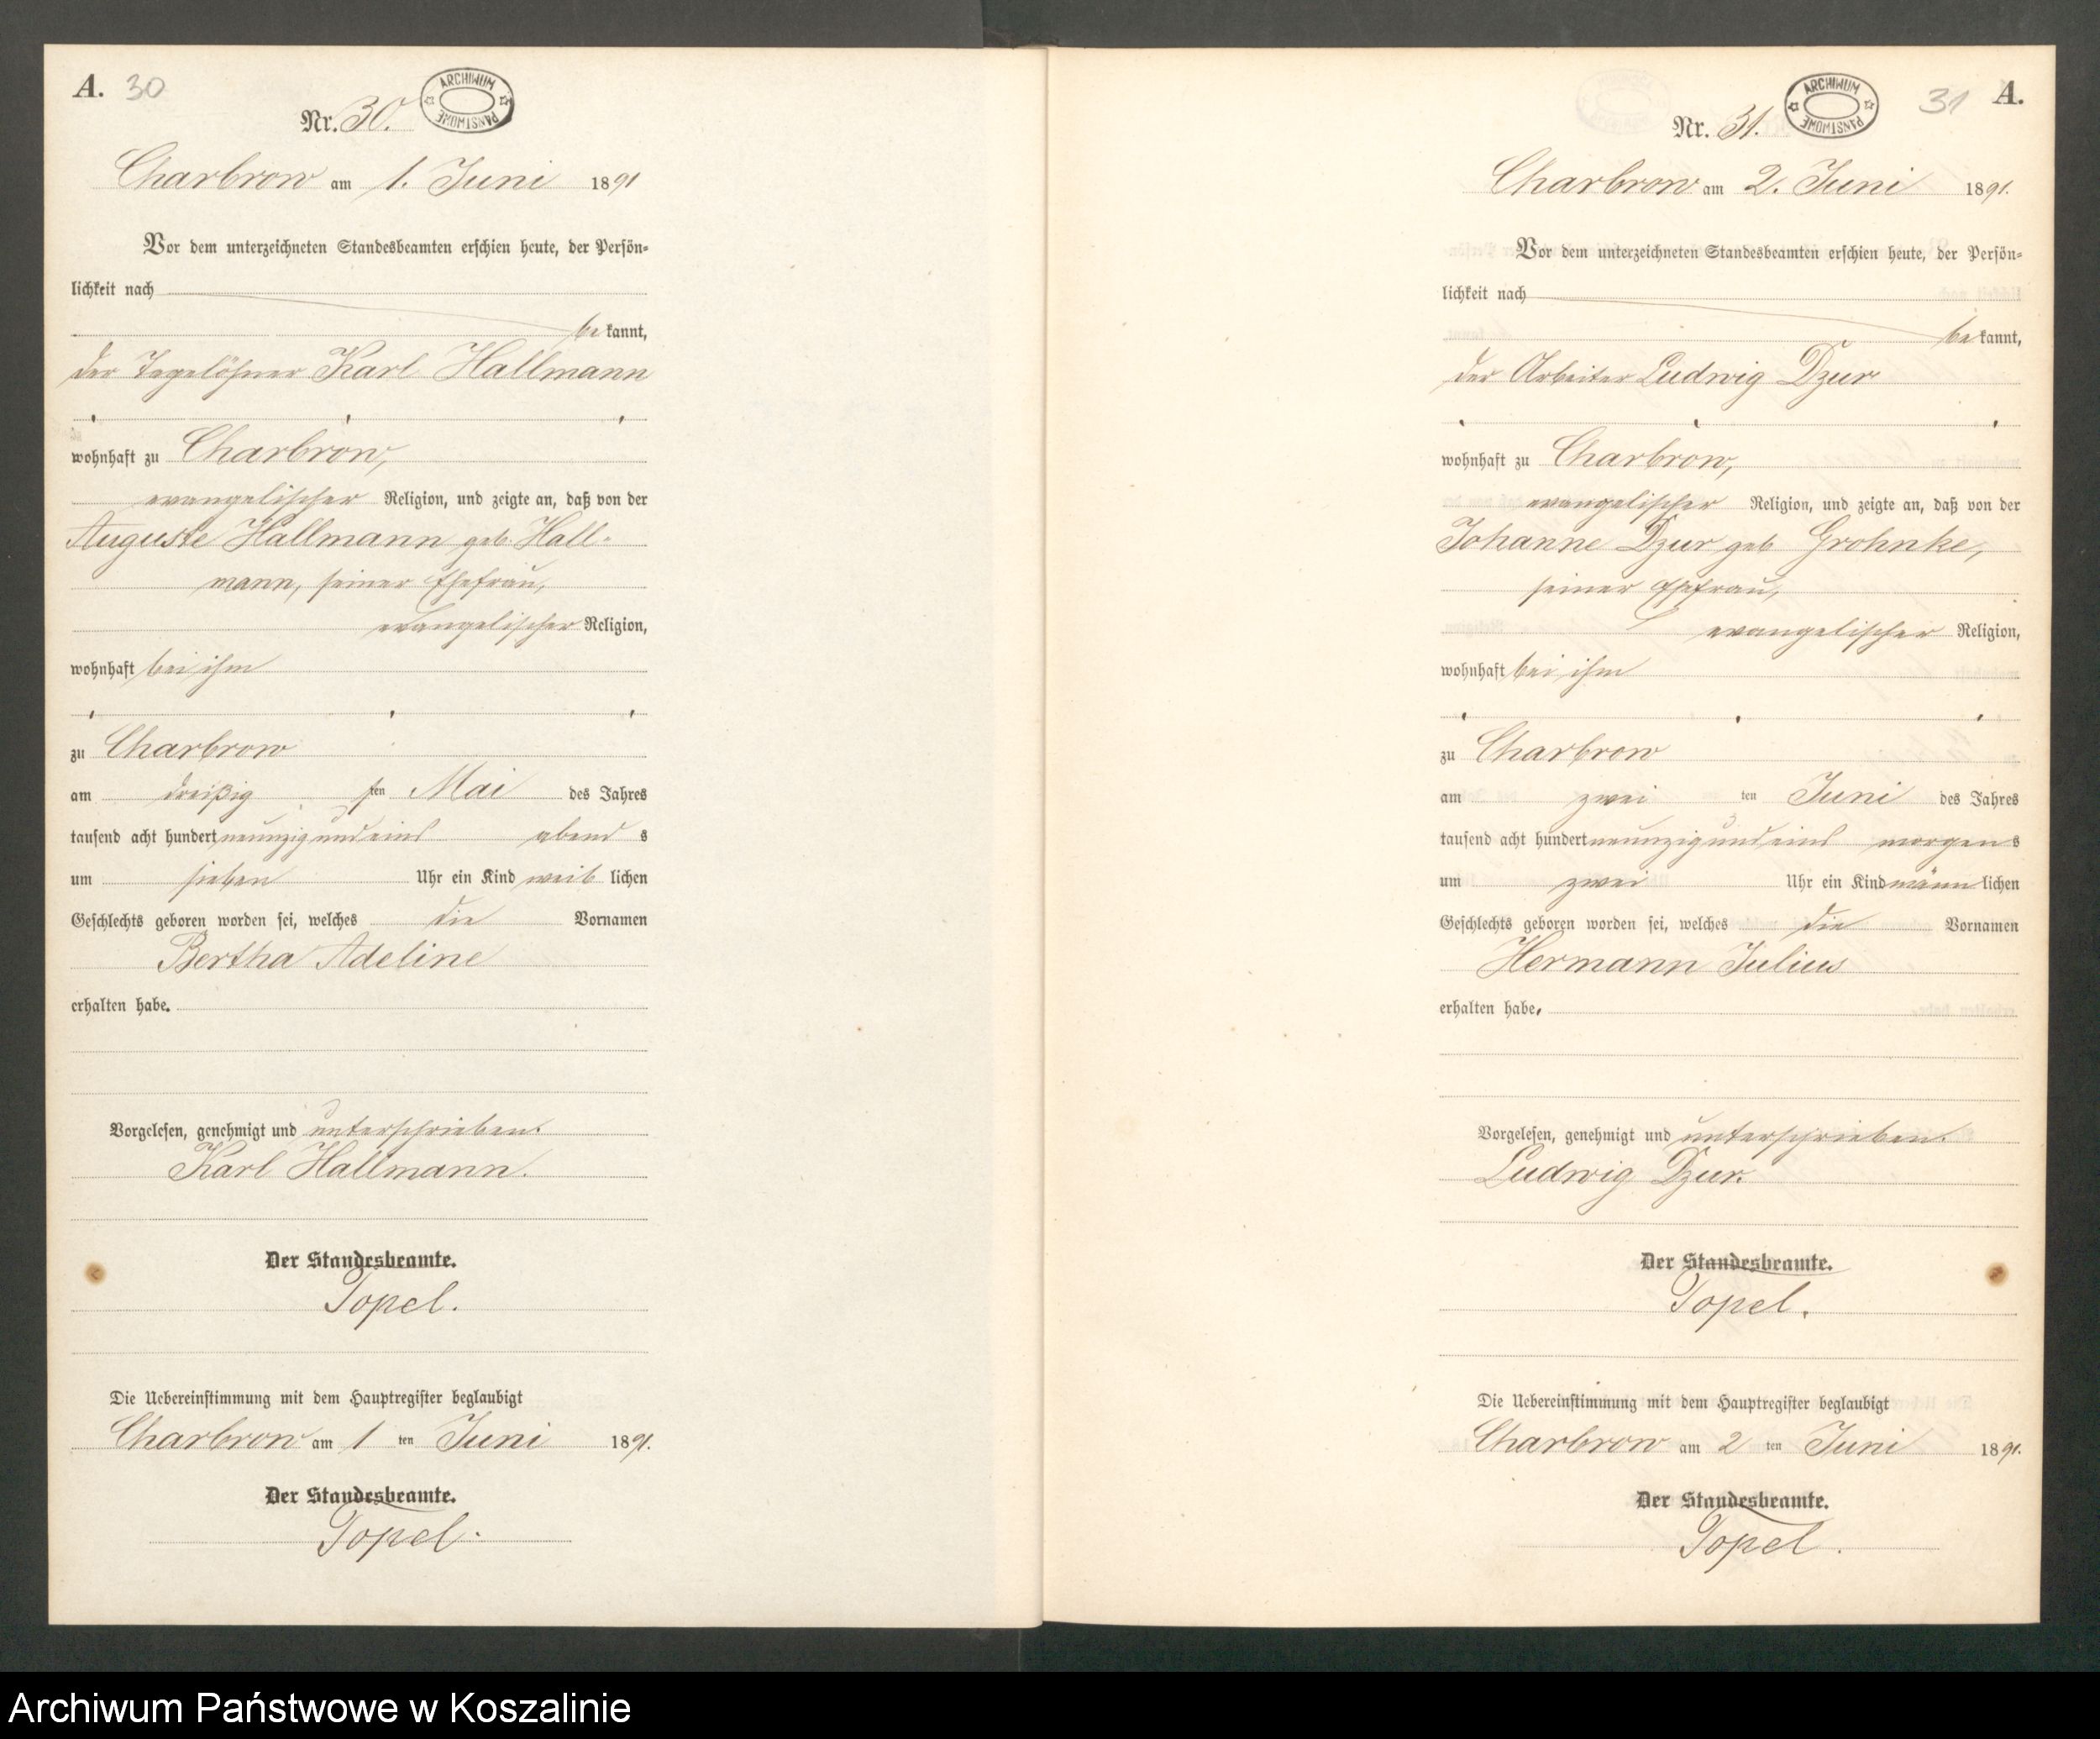 A. 30
ARCHIWUM PAŃSTWOWE
Nr. 30.
Charbrow am 1. Juni 1891
Vor dem unterzeichneten Standesbeamten erschien heute, der Persön-
lichkeit nach
be kannt,
der Tagelöhner Karl Hallmann
wohnhaft zu Charbrow,
evangelischer Religion, und zeigte an, daß von der
Auguste Hallmann geb. Hall-
mann, seiner Ehefrau,
evangelischer Religion,
wohnhaft bei ihm
zu Charbrow
am dreißig sten Mai des Jahres
tausend acht hundert neunzig und eins abend s
um sieben Uhr ein Kind weib lichen
Geschlechts geboren worden sei, welches die Vornamen
Bertha Adeline
erhalten habe.
Vorgelesen, genehmigt und unterschrieben.
Karl Hallmann.
Der Standesbeamte.
Topel.
Die Uebereinstimmung mit dem Hauptregister beglaubigt
Charbrow am 1 ten Juni 1891.
Der Standesbeamte.
Topel.
31 A.
ARCHIWUM PAŃSTWOWE
Nr. 31.
Charbrow am 2. Juni 1891.
Vor dem unterzeichneten Standesbeamten erschien heute, der Persön-
lichkeit nach
be kannt,
der Arbeiter Ludwig Dzur
wohnhaft zu Charbrow,
evangelischer Religion, und zeigte an, daß von der
Johanne Dzur geb Grohnke,
seiner Ehefrau,
evangelischer Religion,
wohnhaft bei ihm
zu Charbrow
am zwei ten Juni des Jahres
tausend acht hundert neunzig und eins morgen s
um zwei Uhr ein Kind männ lichen
Geschlechts geboren worden sei, welches die Vornamen
Hermann Julius
erhalten habe.
Vorgelesen, genehmigt und unterschrieben.
Ludwig Dzur.
Der Standesbeamte.
Topel.
Die Uebereinstimmung mit dem Hauptregister beglaubigt
Charbrow am 2 ten Juni 1891.
Der Standesbeamte.
Topel.
Archiwum Państwowe w Koszalinie